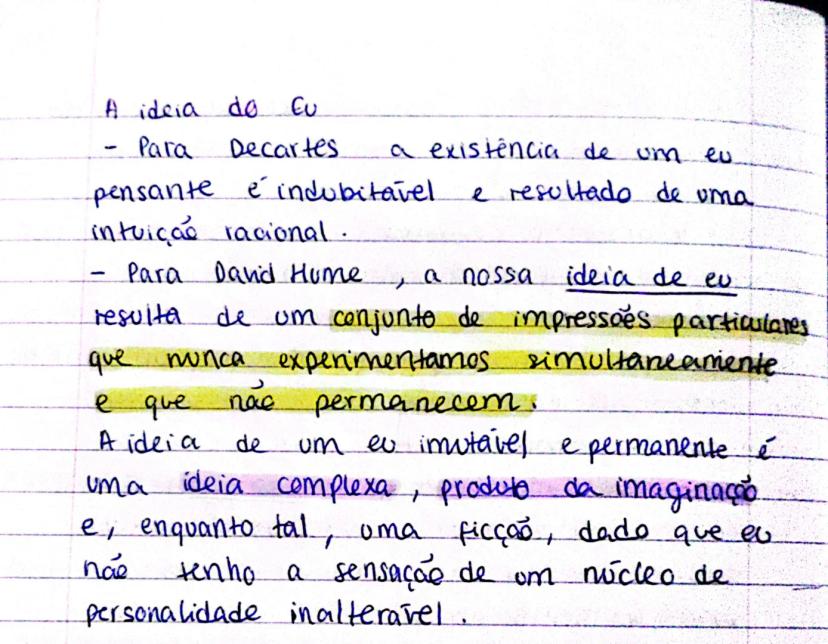 A ideia do Eu
- Para Decartes a existência de um eu
pensante é indubitável e resultado de uma
intuição racional.
- Para David Hume, a nossa ideia de eu
resulta de um conjunto de impressões particulares
que nunca experimentamos simultaneamente
e que não permanecem.
A ideia de um eu imutável e permanente é
uma ideia complexa, produto da imaginação
e, enquanto tal, uma ficção, dado que eu
não tenho a sensação de um núcleo de
personalidade inalterável.